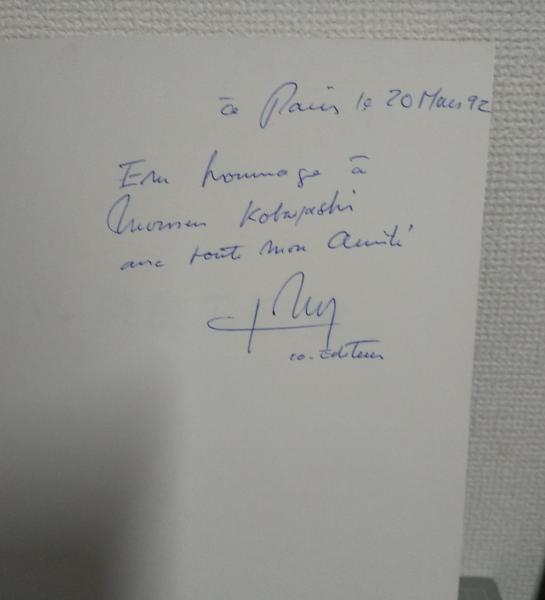 à Paris le 20 Mars 92
En hommage à
Monsieur Kobayashi
avec toute mon Amitié
co-Editeur